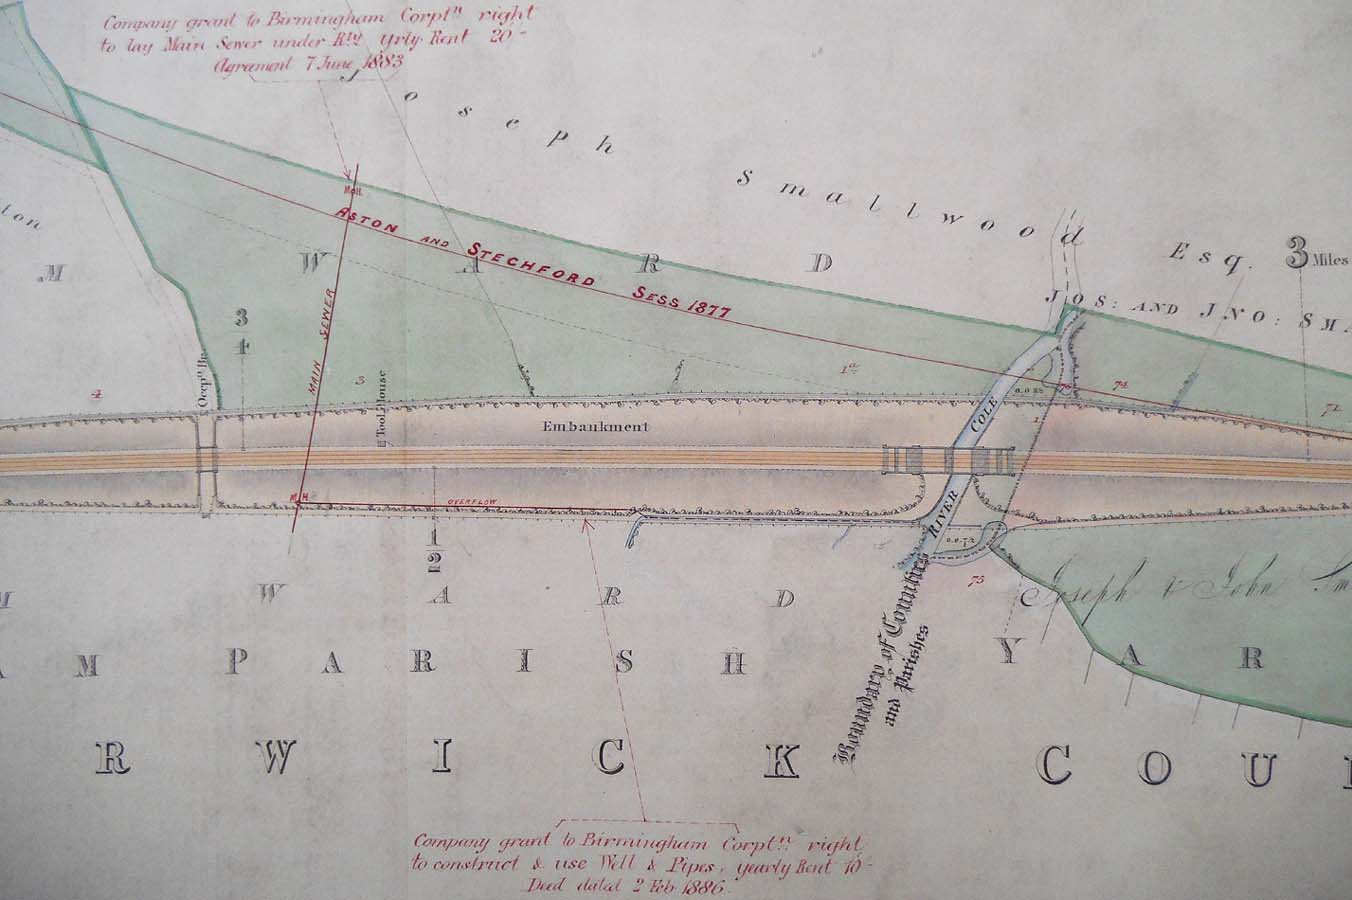 Company grant to Birmingham Corptn right
to lay Main Sewer under Rly yrly Rent 20/-
Agreement 7 June 1883
Joseph Smallwood Esq.
3 Miles
JOS: AND JNO: SMA
ton
M W A R D
M.H.
ASTON AND STECHFORD SESS 1877
MAIN SEWER
3
4
Occpn Br.
4
3
Tool House
1a
74
72
0.0.38
1
Embankment
RIVER COLE
M.H.
OVERFLOW
1
2
0.0.7½
1
75
Joseph & John Sm
M W A R D
AM PARISH YAR
Boundary of Counties
and Parishes
RWICK COU
Company grant to Birmingham Corptn right
to construct & use Well & Pipes, yearly Rent 10/-
Deed dated 2 Feb 1886.